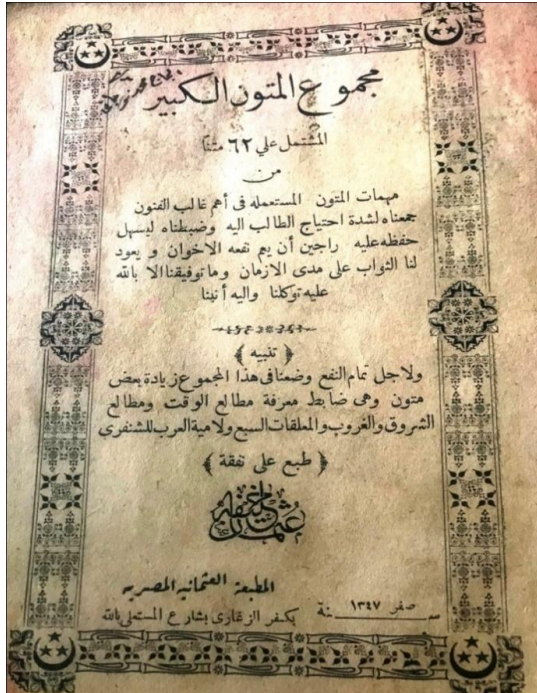 مجموع المتون الكبير
المشتمل علي ٦٢ متنا
من
مهمات المتون المستعمله فى أهم غالب الفنون
جمعناه لشدة احتياج الطالب اليه وضبطناه ليسهل
حفظه عليه راجين أن يعم نفعه الاخوان و يعود
لنا الثواب على مدى الازمان وما توفيقنا الا بالله
عليه توكلنا واليه أنبنا
﴿ تنبيه ﴾
ولاجل تمام النفع وضعنا فى هذا المجموع زيادة بعض
متون وهى ضابط معرفة مطالع الوقت ومطالع
الشروق والغروب والمعلقات السبع ولامية العرب للشنفرى
﴿ طبع على نفقة ﴾
عثمان خليفه
المطبعة العثمانيه المصريه
صفر ١٣٤٧ سنة بكفر الزغارى بشارع المستعلى بالله